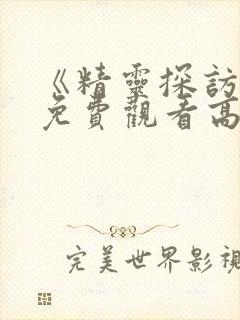 《精靈探訪
免費觀看高
完美世界影視